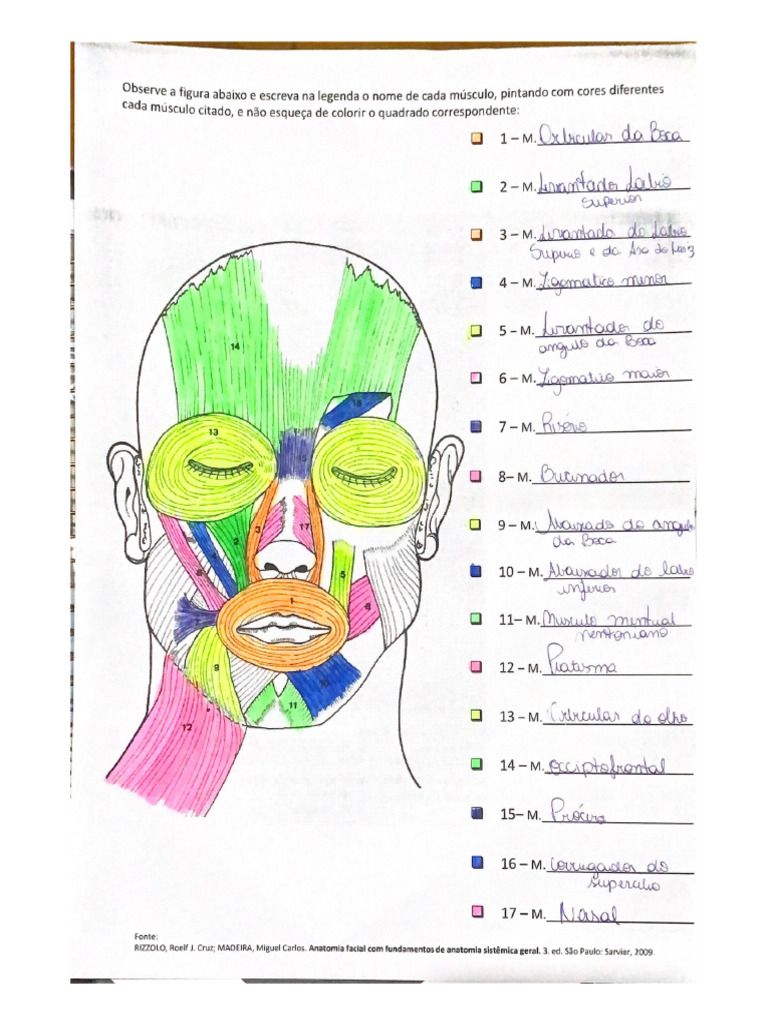 Observe a figura abaixo e escreva na legenda o nome de cada músculo, pintando com cores diferentes
cada músculo citado, e não esqueça de colorir o quadrado correspondente:
1 – M. Orbicular da Boca
2 – M. Levantador Labio
Superior
3 – M. Levantado do Labio
Superio e da Asa do
4 – M. Zigomatico menor
5 – M. Levantador do
angulo da Boca
6 – M. Zigomatico maior
7 – M. Risório
8– M. Bucinador
9 – M. Abaixado do angulo
da Boca
10 – M. Abaixador do labio
inferior
11– M. Musculo mentual
mentoniano
12 – M. Platisma
13 – M. Orbicular do olho
14 – M. occiptofrontal
15– M. Prócero
16 – M. Corrugador do
Supercilio
17 – M. Nasal
14
16
13
15
3
17
2
4
6
5
8
1
7
9
10
11
12
Fonte:
RIZZOLO, Roelf J. Cruz; MADEIRA, Miguel Carlos. Anatomia facial com fundamentos de anatomia sistêmica geral. 3. ed. São Paulo: Sarvier, 2009.